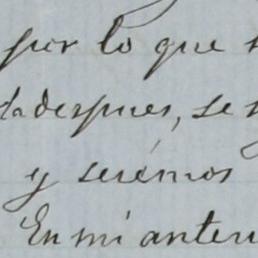 por lo que s
da despues, se s
y serémos
En mi anteri